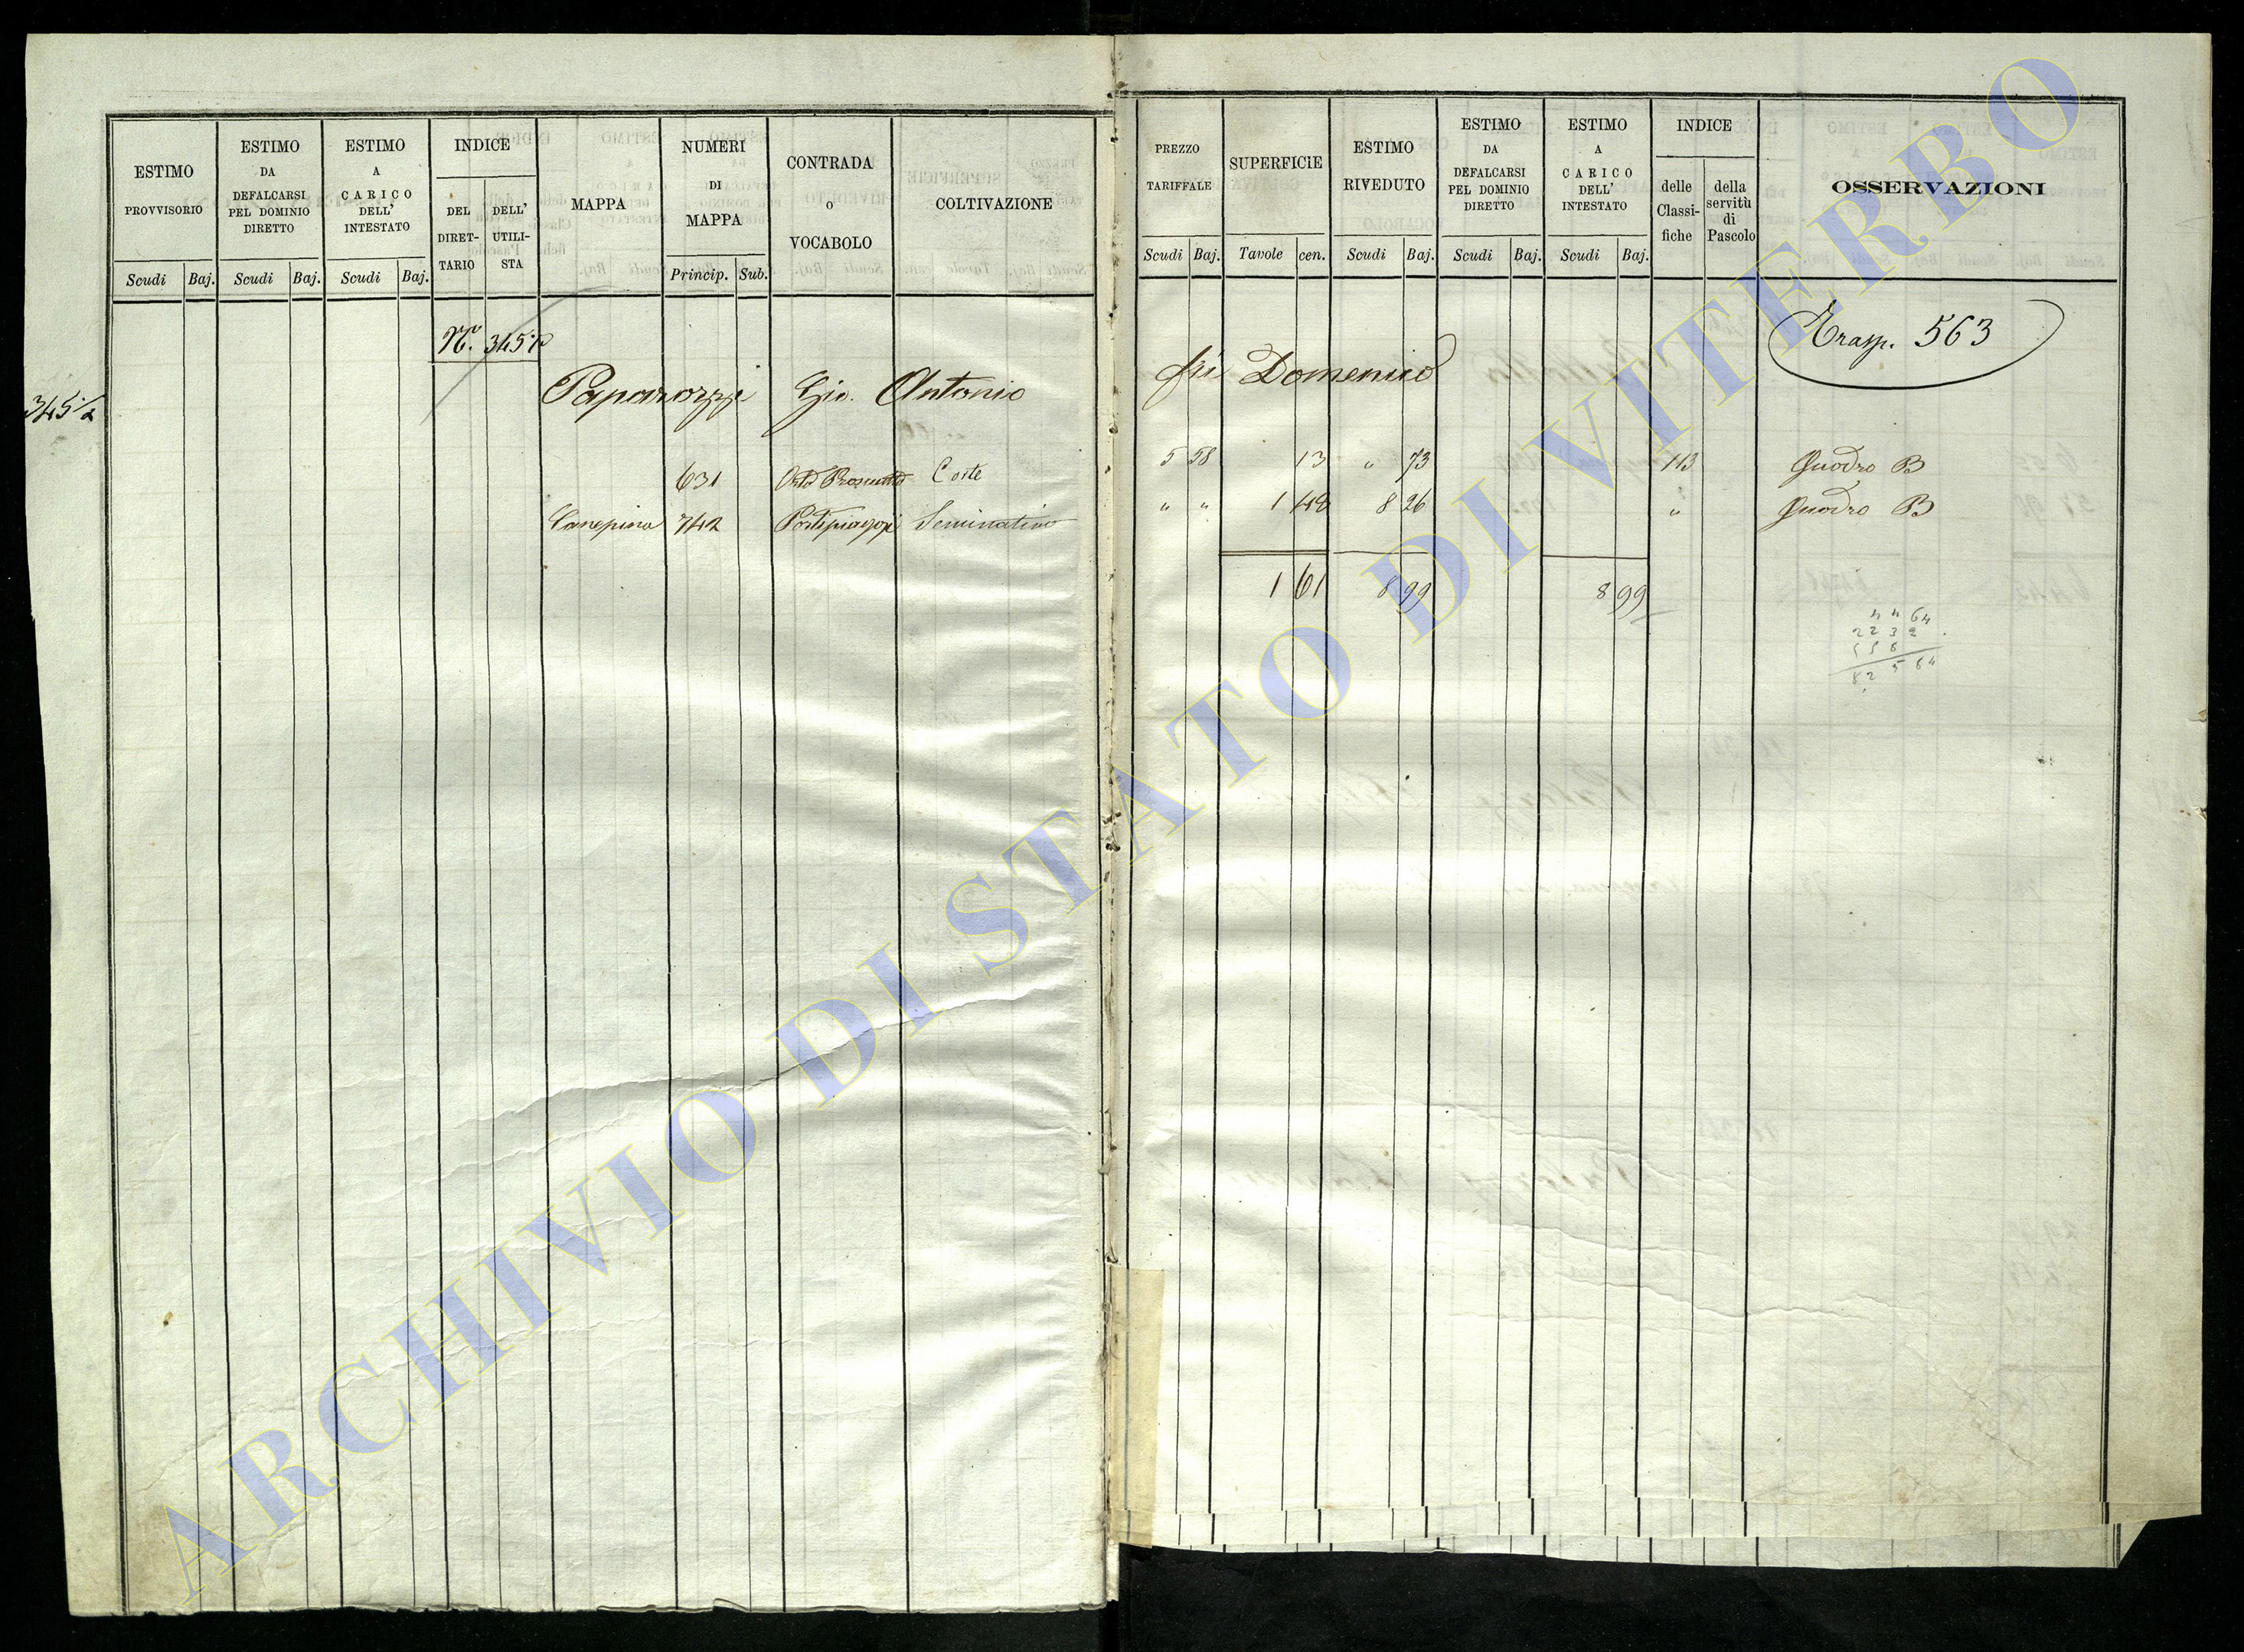 ESTIMO PROVVISORIO
ESTIMO DA DEFALCARSI PEL DOMINIO DIRETTO
ESTIMO A CARICO DELL' INTESTATO
INDICE
DEL DIRET-TARIO
DELL' UTILI-STA
MAPPA
NUMERI DI MAPPA
CONTRADA o VOCABOLO
COLTIVAZIONE
Scudi Baj. Scudi Baj. Scudi Baj. Princip. Sub.
N. 345½
345½
Paparozzi Gio. Antonio
631 Orto Corte
Canepina 742 Seminativo
PREZZO TARIFFALE
SUPERFICIE
ESTIMO RIVEDUTO
ESTIMO DA DEFALCARSI PEL DOMINIO DIRETTO
ESTIMO A CARICO DELL' INTESTATO
INDICE
delle Classi-fiche
della servitù di Pascolo
OSSERVAZIONI
Scudi Baj. Tavole cen. Scudi Baj. Scudi Baj. Scudi Baj.
Trasp. 563
fu Domenico
5 58 13 " 73 113 Quadro B
" " 1 48 8 26 " Quadro B
1 61 8 99 8 99
4464
2232
558
82584
ARCHIVIO DI STATO DI VITERBO